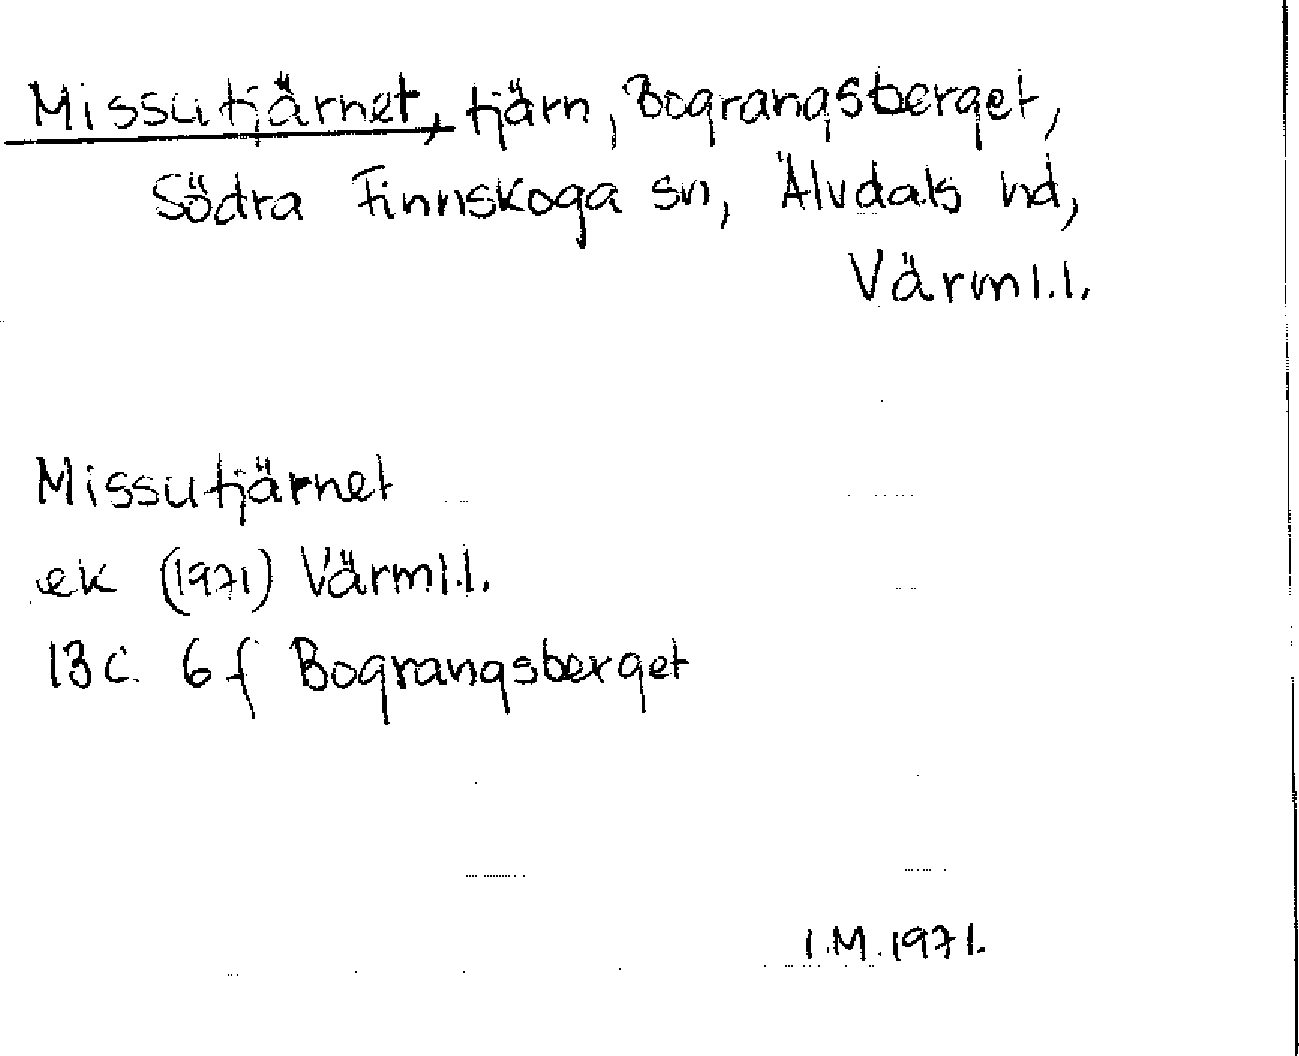 Missutjärnet, tjärn, Bograngsberget,
Södra Finnskoga sn, Älvdals hd,
Värml.l.
Missutjärnet
ek (1971) Värml.l.
13 C 6 f Bograngsberget
I.M. 1971.